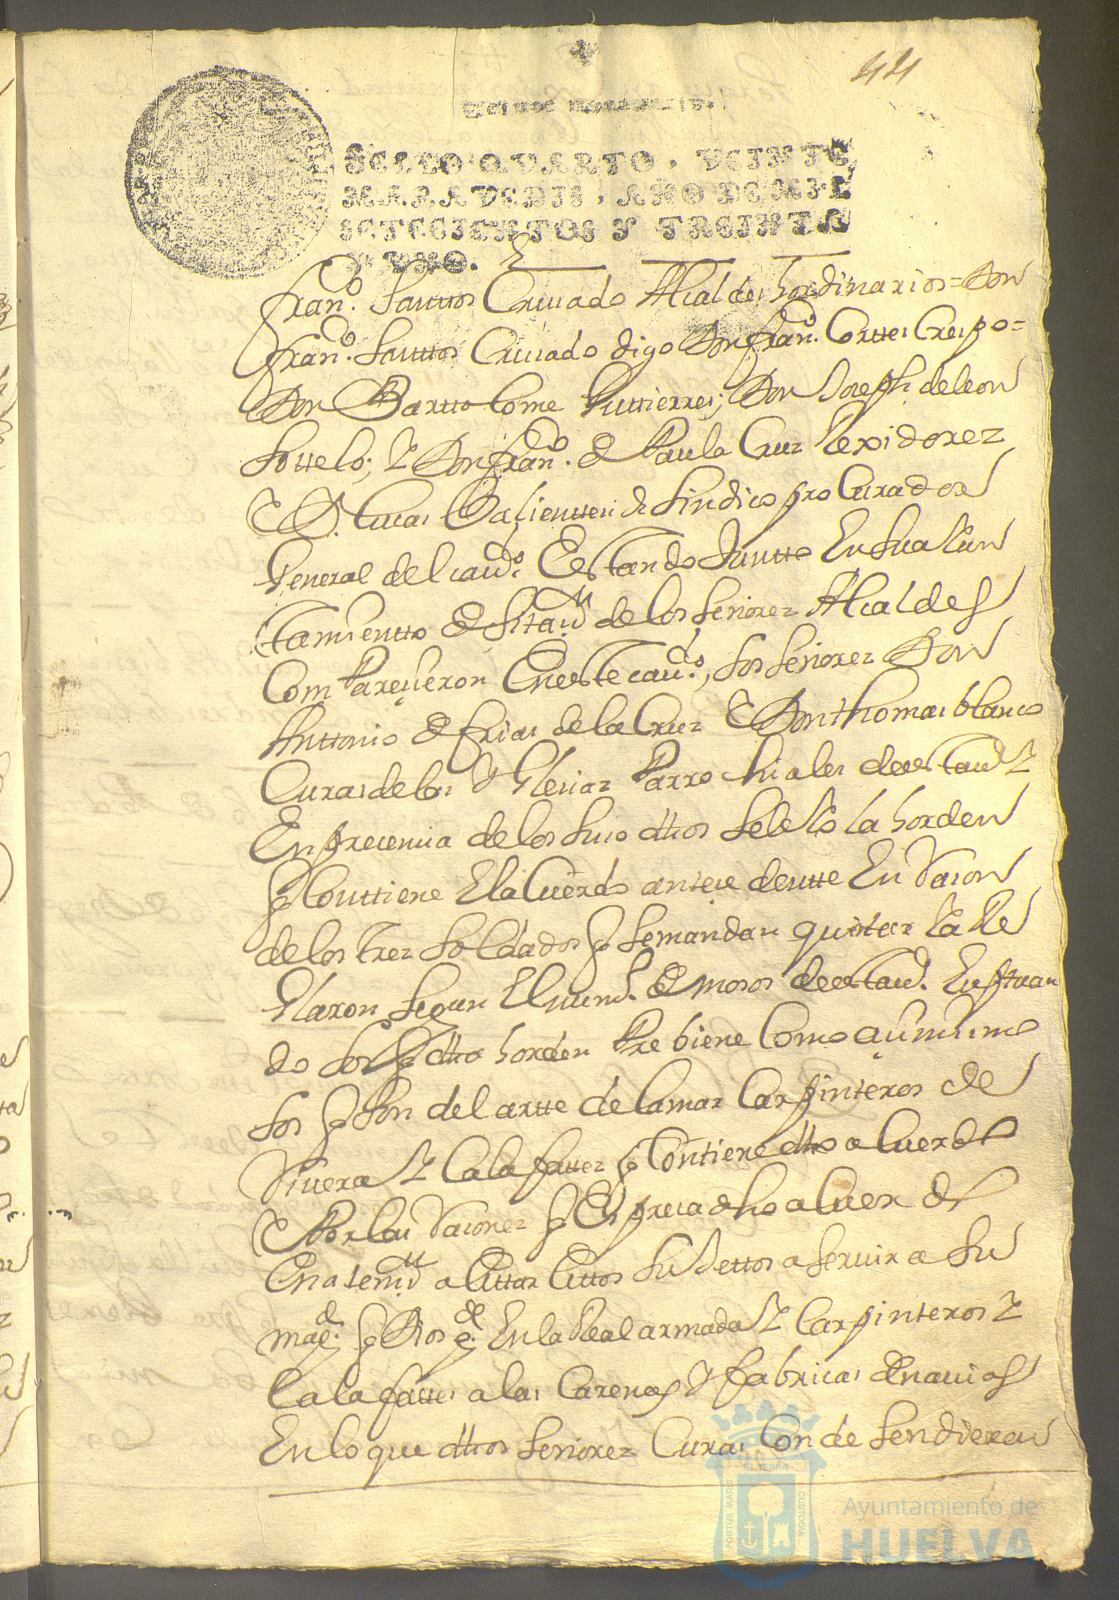 44
SELLO QVARTO, VEINTE
MARAVEDIS, AÑO DE MIL
SETECIENTOS Y TREINTA
Y VNO.
fran.co Santtos Criado Alcaldes hordinarios = Don
fran.co Santtos Criado digo Don fran.co Corttes Crespo =
Don Barttolome Guttierres; Don Joseph de leon
Sottelo; Y Don fran.co de Paula Cruz Rexidorez
Lucas sindico procurador
General del cavd.o Estando Juntto En su aiun
tamientto de los señorez Alcaldes
Compareçieron En este cavd.o, los señorez Don
Anttonio de frias de la Cruz Don thomas blanco
Curas de las Yglecias Parrochiales de esta v.a Y
En precencia de los suso dhos se leio la horden
q conttiene El acuerdo anteçedentte En Racon
de los trez soldados q se mandan
segun El de mosos de esta
do dha horden Prebiene Como
los q son del artte de la mar Carpinteros de
Rivera Y Calafattez q Conttiene dho acuerdo
Por las Racones q Expreca dho acuerdo
a sujettos a servir a su
mag.d q Dios g.de En la Real armada Y Carpinteros Y
Calafattes a las Carenas Y fabricas de navios
En lo que dhos señorez Curas Condesendieron
PORTUS MARIS ET TERRAE CUSTODIA
Ayuntamiento de
HUELVA